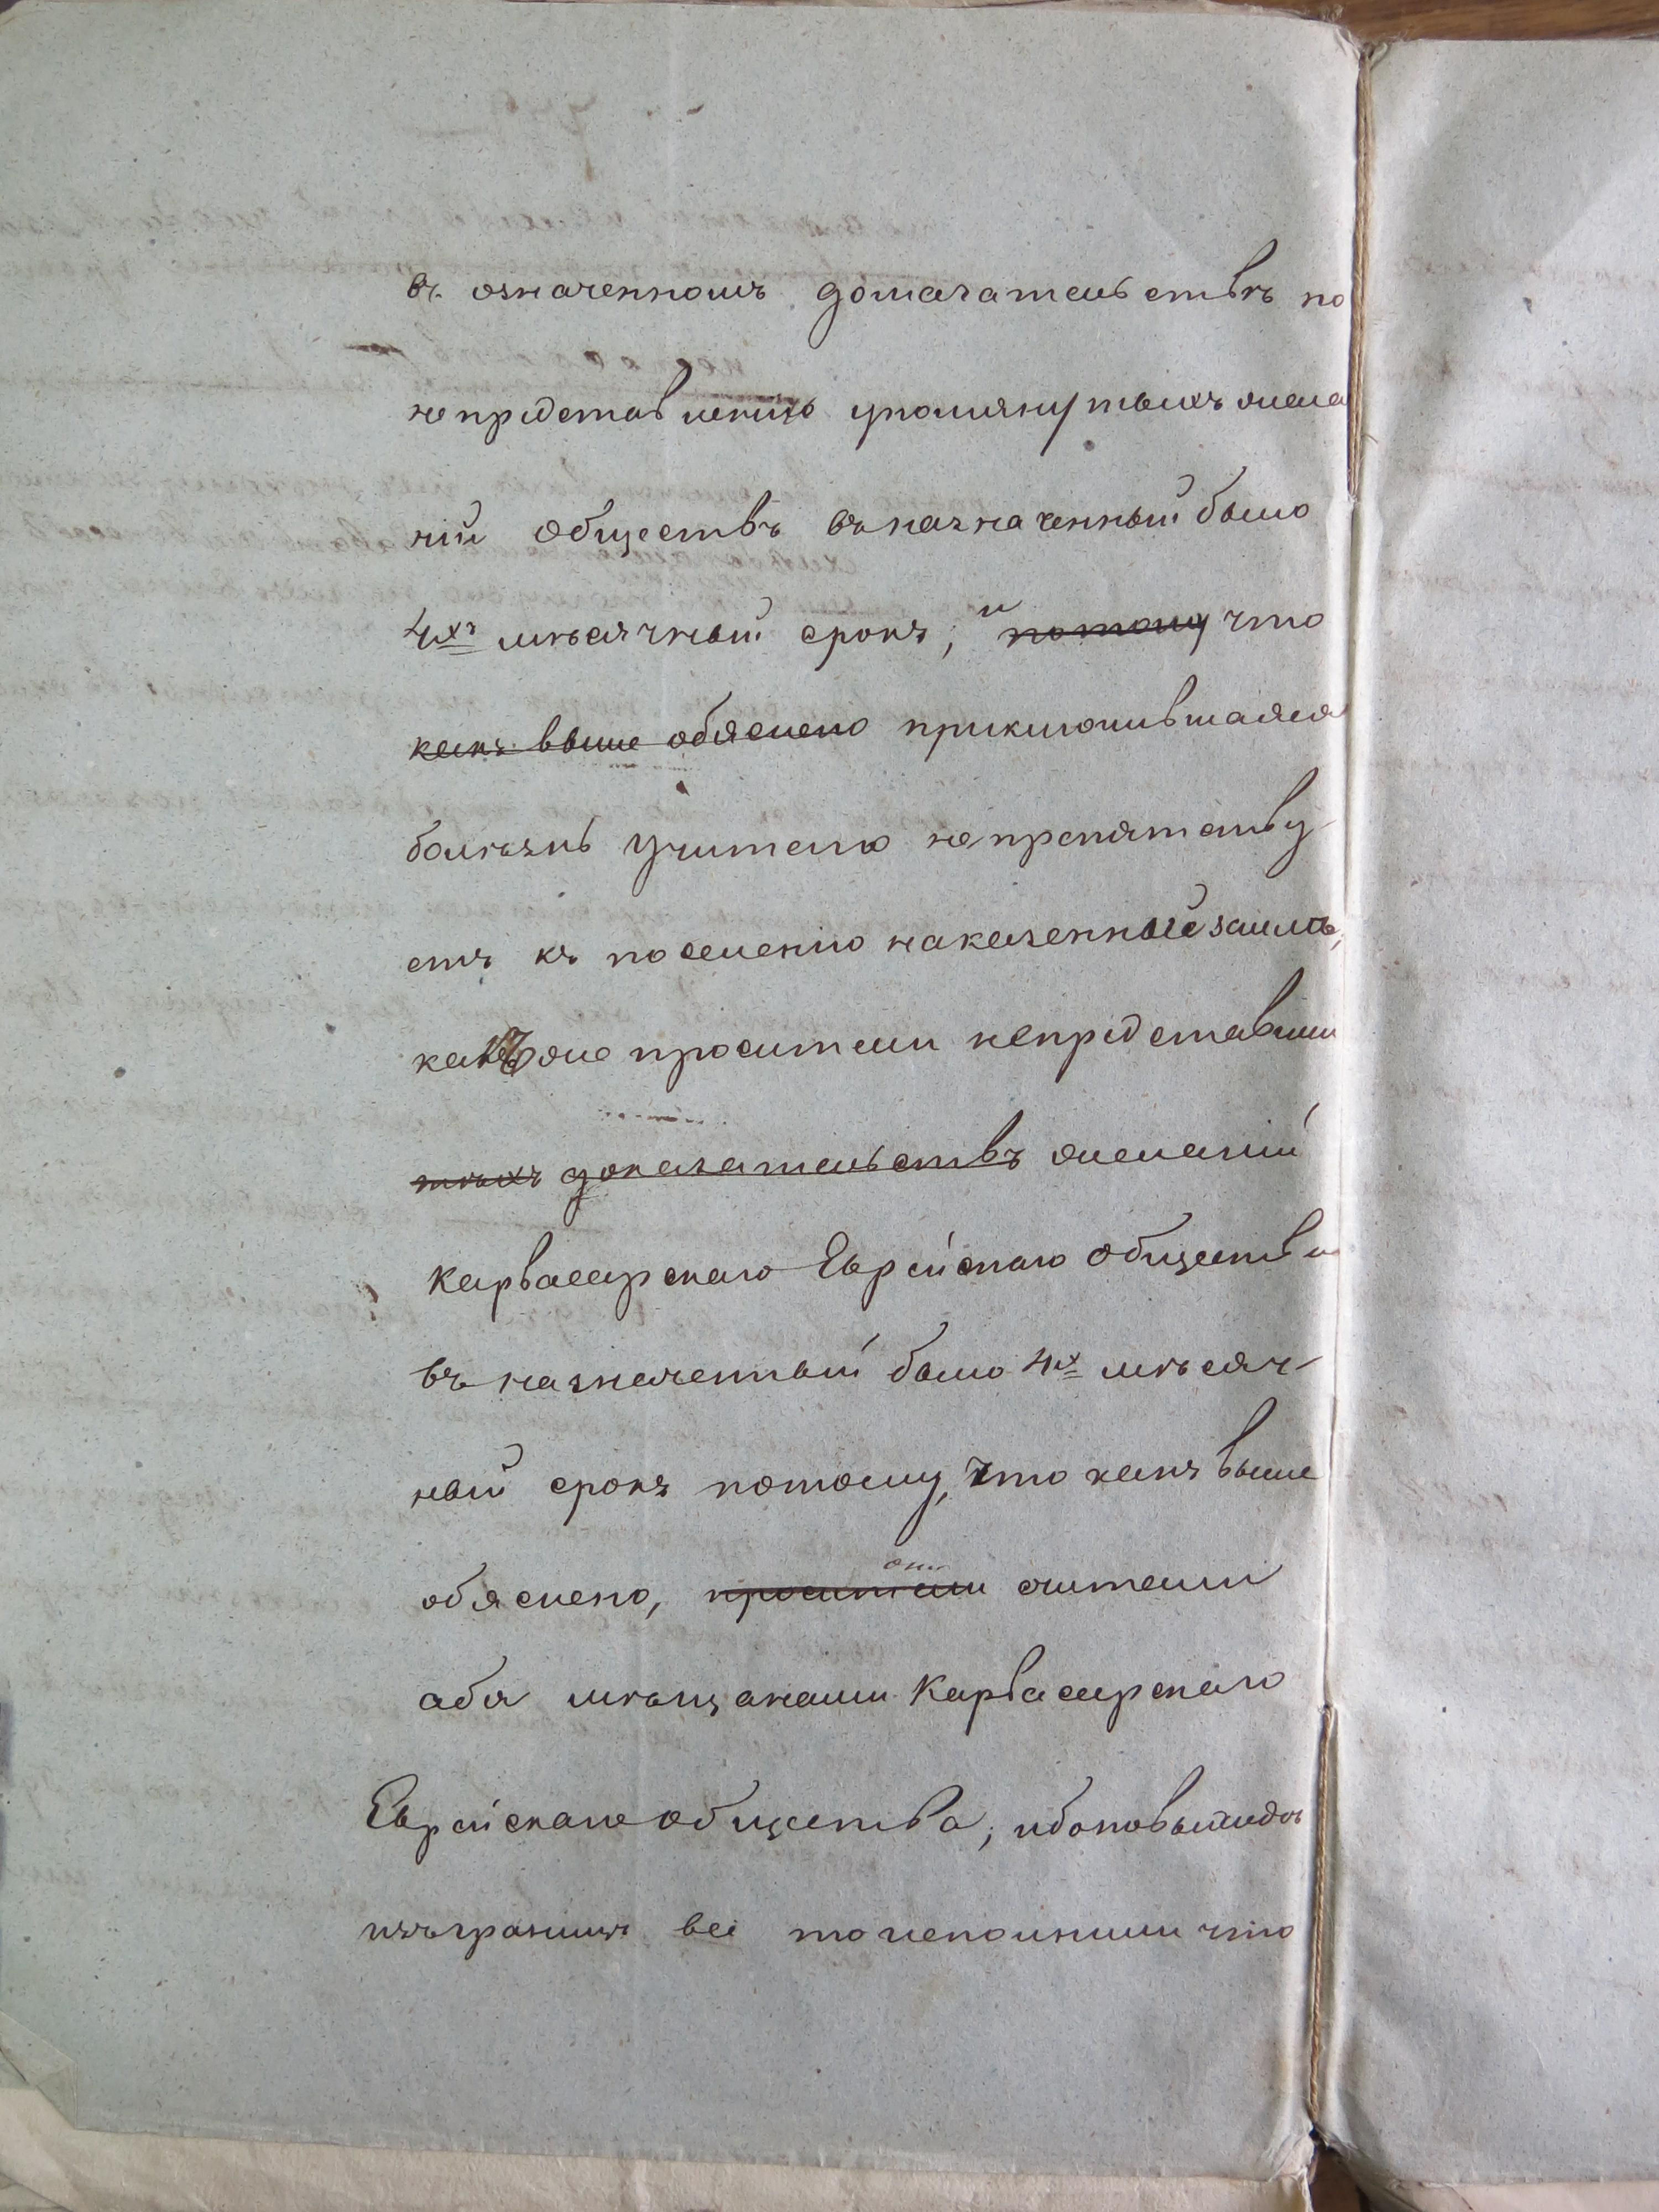 въ означенномъ домагательствѣ по
непредставленію упомянутыхъ жела
ній обществъ въ назначенный было
4хъ мѣсячный срокъ, и потому что
какъ выше обяснено приключившаяся
болѣзнь учителю непрепятству
етъ къ поселенію на казенные земли,
просители непредставили
тѣхъ доказательствъ желаній
Карвасарскаго Еврейскаго общества
въ назначенный было 4х мѣсяч-
ный срокъ потому, что какъ выше
обяснено, просители они считали
себя мѣщанами Карвасарскаго
Еврейскаго общества, ибо по
изъ границы все то исполнили что